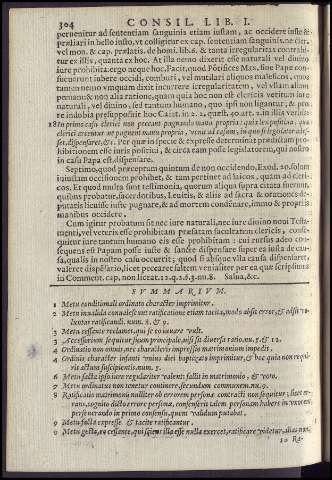 304 CONSIL. LIB. I.
peruenitur ad sententiam sanguinis etiam iustam, ac occidere iuste &
præliari in bello iusto, vt colligitur ex cap. sententiam sanguinis, ne cler.
vel mon. & cap. prælatis. de homi. lib. 6. & tanta irregularitas contrahi-
tur ex illis, quanta ex hoc. At illa nemo dixerit esse naturali vel diuino
iure prohibita. ergo neque hoc. Facit, quod Põtifices Max. sine Pape con-
sueuerunt iubere occidi, comburi, vel mutilari aliquos maleficos, quos
tamen nemo vnquam dixit incurrere irregularitatem, vel vllam aliam
pœnam: & non alia ratione, quam quia hoc non est clericis vetitum iure
naturali, vel diuino, sed tantum humano, quo ipsi non ligantur, &
re indobia præsupposuit hoc Caiet. in 2. 2. quæst. 40. art.
18 In primo casu clerici non peccant pugnando manu propria:
clerici arcentur ne pugnent manu propria, venit ad casum, in quo si legislator
set, dispensaret, &c. Per quæ in specie & expresse determinat prædictam pro-
hibitionem esse iuris positiui, & circa eam posse legislatorem, qui nostro
in casu Papa est, dispensare.
Septimo, quod præceptum quintum de non occidendo, Exod. 20. solum
iniustam occisionem prohibet, & tam pertinet ad laicos, quam ad cleri-
cos. Et quod multa sunt testimonia, quorum aliqua supra citata fuerunt,
quibus probatur, sacerdotibus, Leuitis, & aliis ad sacra & orationes de-
putatis licuisse iuste pugnare, & ad mortem condemnare, immo & propriis
manibus occidere.
Cum igitur probatum sit nec iure naturali, nec iure diuino noui Testa-
menti, vel veteris esse prohibitam præfatam facultatem clericis, conse-
quitur iure tantum humano eis esse prohibitam: cui rursus adeo con-
sequens est Papam posse iuste & sancte dispensare super ea iusta de cau-
sa, qualis in nostro casu occurrit; quod si absque vlla causa dispensaret,
valeret dispēsatio, licet peccaret saltem venialiter per ea quæ scripsimus
in Comment. cap. non liceat. 12. q. 2. §. 3. nu. 8. Salua, &c.
SVMMARIVM.
1 Metu conditionali ordinato character imprimitur.
2 Metu inualida conualescunt ratificatione etiam tacita, modo absit error, & adsit vo-
luntas ratificandi. num. 8. & 9.
3 Metu cessante reclamet, qui se co iuuare vult.
3 Accessorium sequitur suum principale, nisi sit diuersa ratio. nu. 5. & 12.
4 Ordinatio non omnis, nec characteris impressio matrimonium impedit.
4 Ordinis character infanti vnius diei baptizato imprimitur, & hoc quia non requi-
rit actum suscipientis. num. 5.
6 Metu facta ipso iure regulariter valent: fallit in matrimonio, & voto.
7 Metu ordinatus non tenetur continere, secundum communem. nu. 9.
8 Ratificatio matrimonii nulliter ob errorem personæ contracti non sequitur, licet er-
rans, cognito dicto errore personæ, consenserit talem personam habere in vxorem
perseuerando in primo consensu, quem validum putabat.
9 Metu facta expresse & tacite ratificantur.
9 Metu gesta, eo cessante, qui sciens illa esse nulla exercet, ratificare videtur, alias non.
10 Ra-